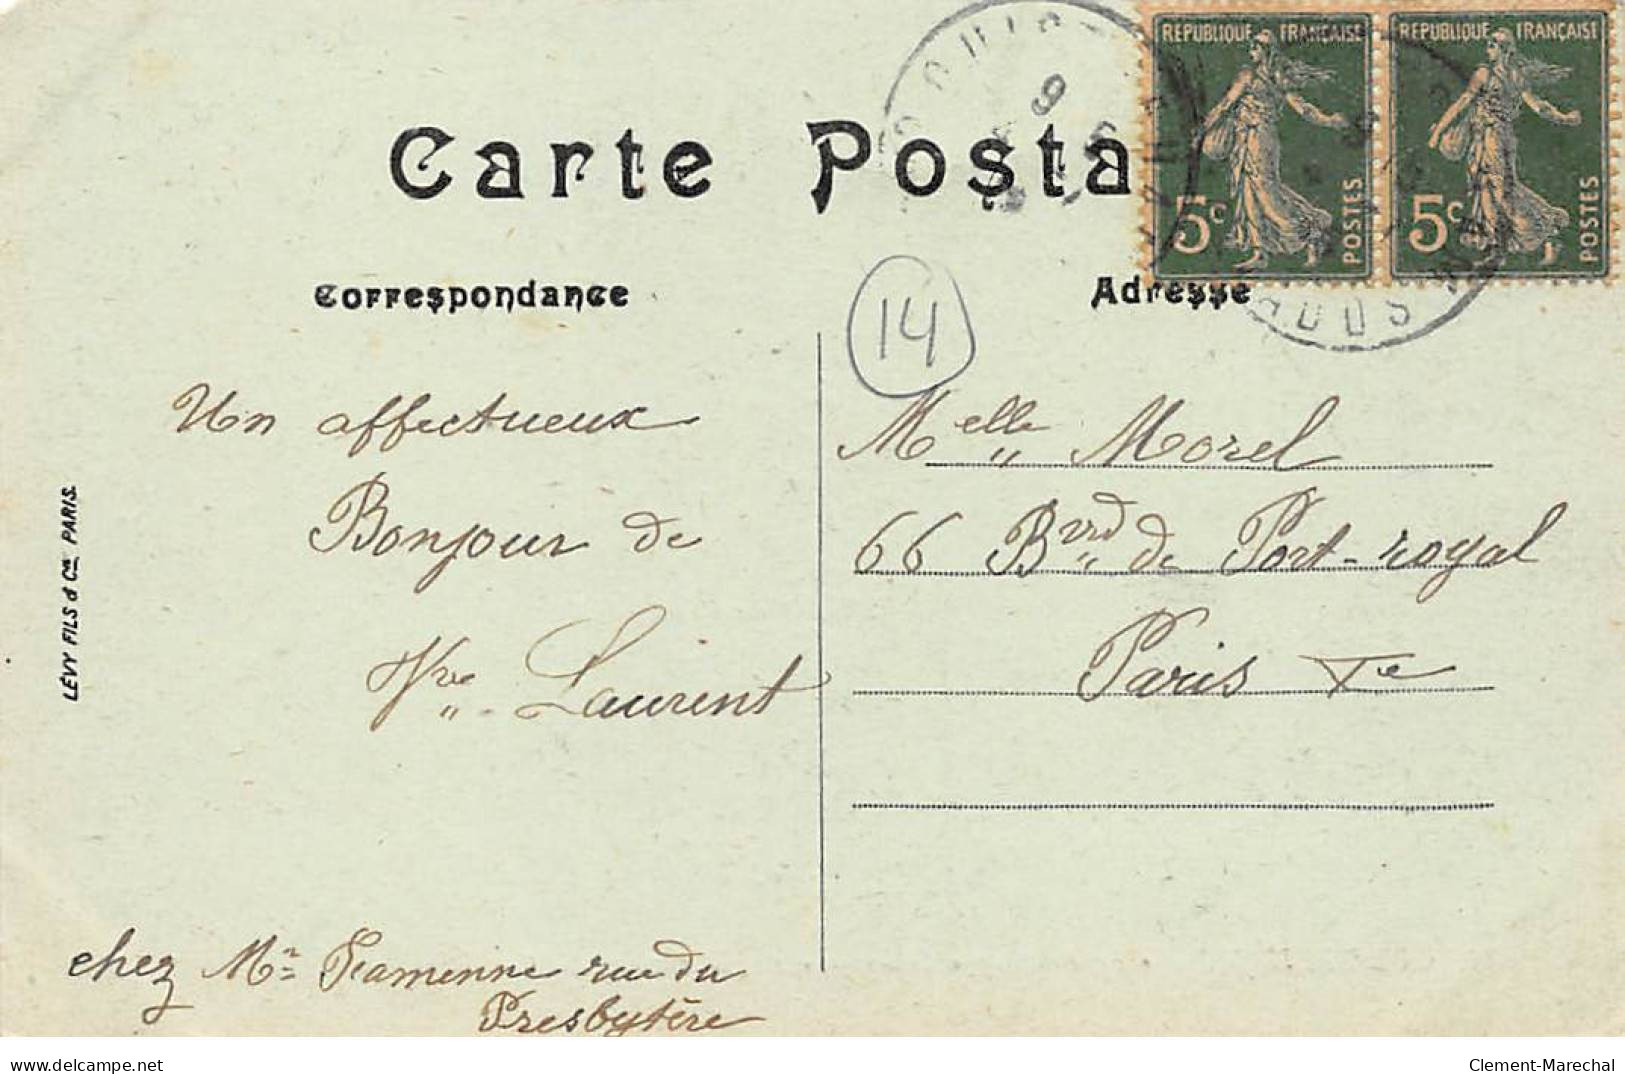 Carte Posta
RÉPUBLIQUE FRANÇAISE
5c
POSTES
RÉPUBLIQUE FRANÇAISE
5c
POSTES
Correspondance
Adresse
14
Un affectueux
Bonjour de
Vve Laurent
chez Mr rue du
Presbytère
Melle Morel
66 Bvrd de Port-royal
Paris Ve
LÉVY FILS & Cie PARIS.
delcampe.net
Clement-Marechal